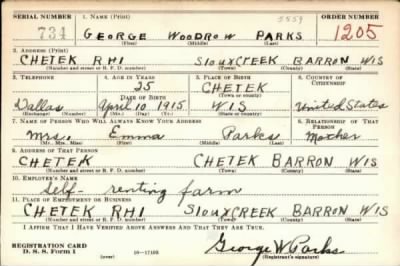 SERIAL NUMBER 1. NAME (Print) ORDER NUMBER
5559
734 GEORGE WOODROW PARKS 1205
(First) (Middle) (Last)
2. ADDRESS (Print)
CHETEK RH1 SIOUXCREEK BARRON WIS
(Number and street or R. F. D. number) (Town) (County) (State)
3. TELEPHONE 4. AGE IN YEARS 5. PLACE OF BIRTH 6. COUNTRY OF CITIZENSHIP
25 CHETEK
DATE OF BIRTH (Town or county)
Dallas April 10 1915 WIS United States
(Exchange) (Number) (Mo.) (Day) (Yr.) (State or country)
7. NAME OF PERSON WHO WILL ALWAYS KNOW YOUR ADDRESS 8. RELATIONSHIP OF THAT PERSON
Mrs. Emma Parks Mother
(Mr., Mrs., Miss) (First) (Middle) (Last)
9. ADDRESS OF THAT PERSON
CHETEK CHETEK BARRON WIS
(Number and street or R. F. D. number) (Town) (County) (State)
10. EMPLOYER'S NAME
Self- renting farm
11. PLACE OF EMPLOYMENT OR BUSINESS
CHETEK RH1 SIOUXCREEK BARRON WIS
(Number and street or R. F. D. number) (Town) (County) (State)
I AFFIRM THAT I HAVE VERIFIED ABOVE ANSWERS AND THAT THEY ARE TRUE.
REGISTRATION CARD George W. Parks
D. S. S. Form 1 (over) 16—17105 (Registrant's signature)